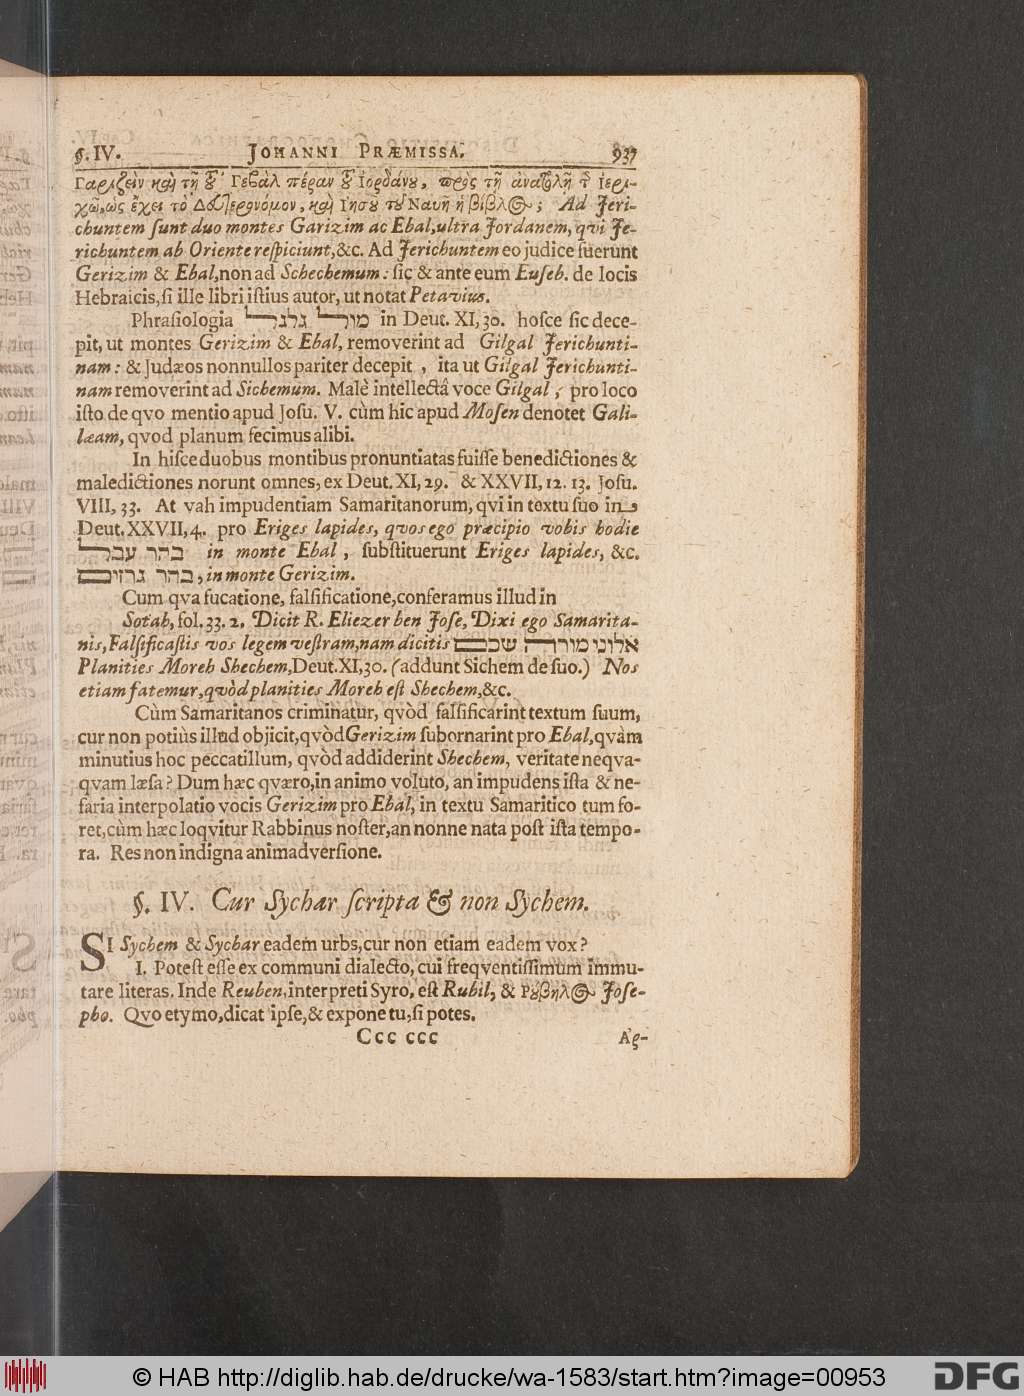 §. IV. JOHANNI PRÆMISSA. 937
Γαριζεὶν καὶ τῇ τοῦ Γεβὰλ πέραν τοῦ Ἰορδάνου, πρὸς τῇ ἀνατολῇ τ͂ Ἱερι-
χῶ, ὡς ἔχει τὸ Δευτερονόμιον, καὶ Ἰησοῦ τοῦ Ναυῆ ἡ βίβλος; Ad Jeri-
chuntem ſunt duo montes Garizim ac Ebal, ultra Jordanem, qvi Je-
richuntem ab Oriente reſpiciunt, &c. Ad Jerichuntem eo judice fuerunt
Gerizim & Ebal, non ad Schechemum: ſic & ante eum Euſeb. de locis
Hebraicis, ſi ille libri iſtius autor, ut notat Petavius.
Phraſiologia מול גלגל in Deut. XI, 30. hoſce ſic dece-
pit, ut montes Gerizim & Ebal, removerint ad Gilgal Jerichunti-
nam: & Judæos nonnullos pariter decepit, ita ut Gilgal Jerichunti-
nam removerint ad Sichemum. Malè intellectâ voce Gilgal, pro loco
iſto de qvo mentio apud Joſu. V. cùm hic apud Moſen denotet Gali-
læam, qvod planum fecimus alibi.
In hiſce duobus montibus pronuntiatas fuiſſe benedictiones &
maledictiones norunt omnes, ex Deut. XI, 29. & XXVII, 12. 13. Joſu.
VIII, 33. At vah impudentiam Samaritanorum, qvi in textu ſuo in
Deut. XXVII, 4. pro Eriges lapides, qvos ego præcipio vobis hodie
בהר עבל in monte Ebal, ſubſtituerunt Eriges lapides, &c.
בהר גרזים, in monte Gerizim.
Cum qva fucatione, falſificatione, conferamus illud in
Sotah, fol. 33. 2. Dicit R. Eliezer ben Joſe, Dixi ego Samarita-
nis, Falſificaſtis vos legem veſtram, nam dicitis אלוני מורה שכם
Planities Moreh Shechem, Deut. XI, 30. (addunt Sichem de ſuo.) Nos
etiam fatemur, qvòd planities Moreh eſt Shechem, &c.
Cùm Samaritanos criminatur, qvòd falſificarint textum ſuum,
cur non potiùs illud objicit, qvòd Gerizim ſubornarint pro Ebal, qvàm
minutius hoc peccatillum, qvòd addiderint Shechem, veritate neqva-
qvam læſa? Dum hæc qværo, in animo voluto, an impudens iſta & ne-
faria interpolatio vocis Gerizim pro Ebal, in textu Samaritico tum fo-
ret, cùm hæc loqvitur Rabbinus noſter, an nonne nata poſt iſta tempo-
ra. Res non indigna animadverſione.
§. IV. Cur Sychar ſcripta & non Sychem.
SI Sychem & Sychar eadem urbs, cur non etiam eadem vox?
I. Poteſt eſſe ex communi dialecto, cui freqventiſſimum immu-
tare literas. Inde Reuben, interpreti Syro, eſt Rubil, & Ρούβηλος Joſe-
pho. Qvo etymo, dicat ipſe, & expone tu, ſi potes.
Ccc ccc Ἀρ-
© HAB http://diglib.hab.de/drucke/wa-1583/start.htm?image=00953
DFG